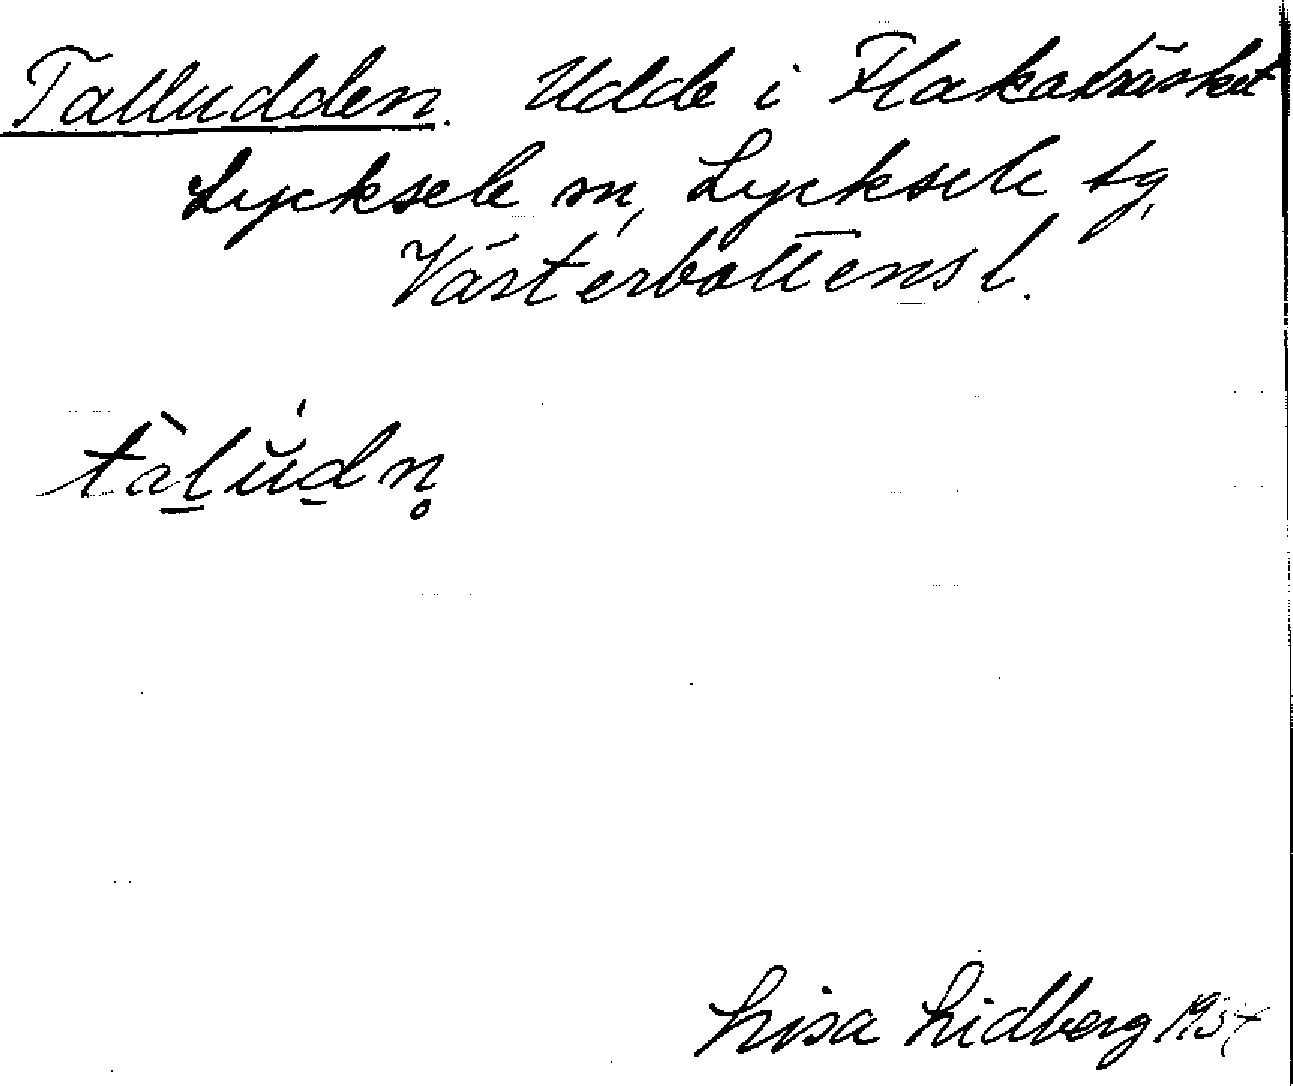 Talludden. Udde i Flakaträsket
Lycksele sn, Lycksele tg,
Västerbottens l.
tàl̲ŭd̲n̥
Lisa Lidberg